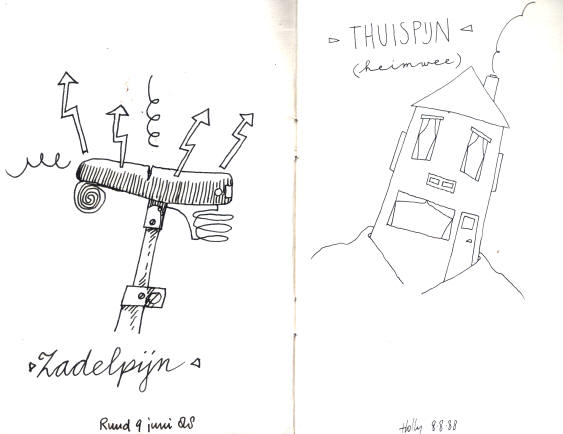 Zadelpijn
Ruud 9 juni 88
THUISPIJN
(heimwee)
Holly 8.8.88